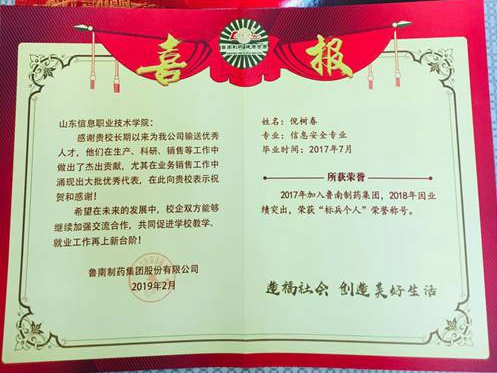 喜报
山东信息职业技术学院：
感谢贵校长期以来为我公司输送优秀
人才，他们在生产、科研、销售等工作中
做出了杰出贡献，尤其在业务销售工作中
涌现出大批优秀代表，在此向贵校表示祝
贺和感谢！
希望在未来的发展中，校企双方能够
继续加强交流合作，共同促进学校教学、
就业工作再上新台阶！
鲁南制药集团股份有限公司
2019年2月
姓名：倪树春
专业：信息安全专业
毕业时间：2017年7月
所获荣誉
2017年加入鲁南制药集团，2018年因业
绩突出，荣获“标兵个人”荣誉称号。
造福社会 创造美好生活